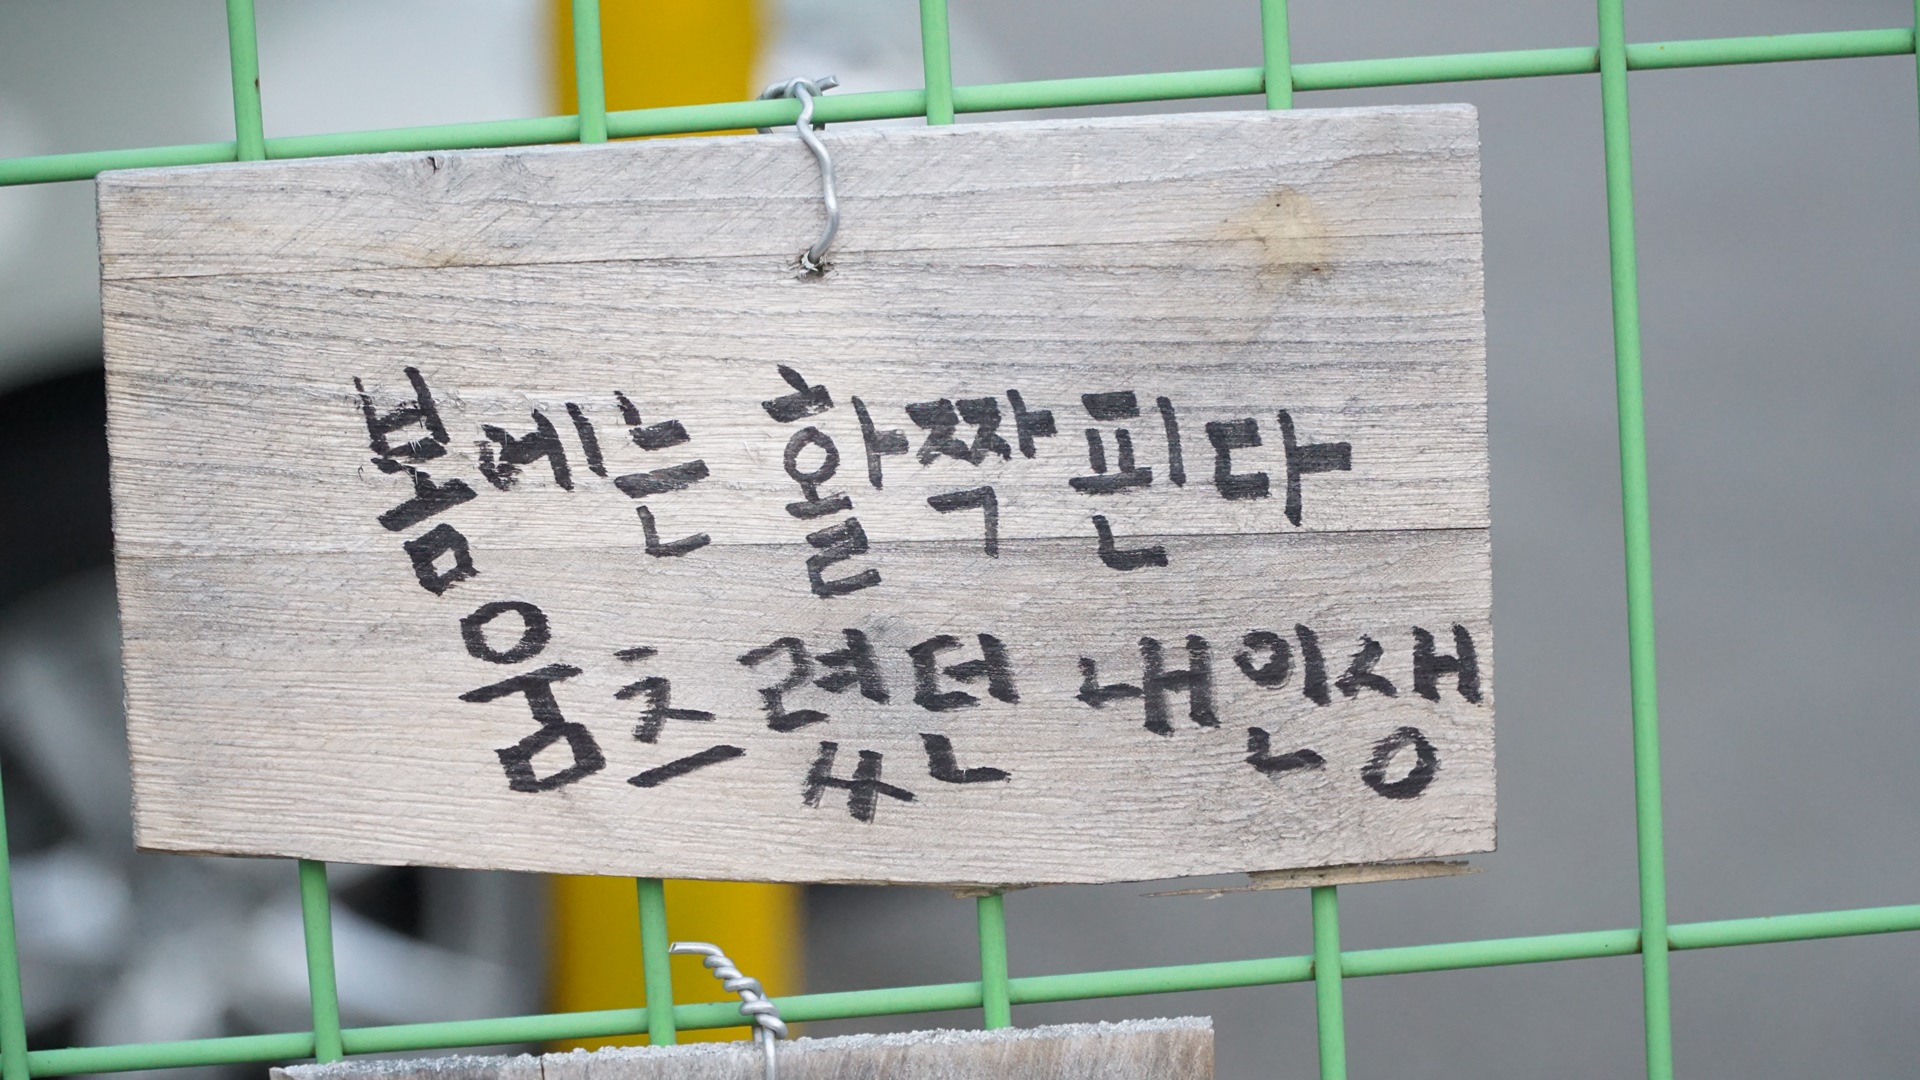 봄에는 활짝 핀다
움츠렸던 내 인생